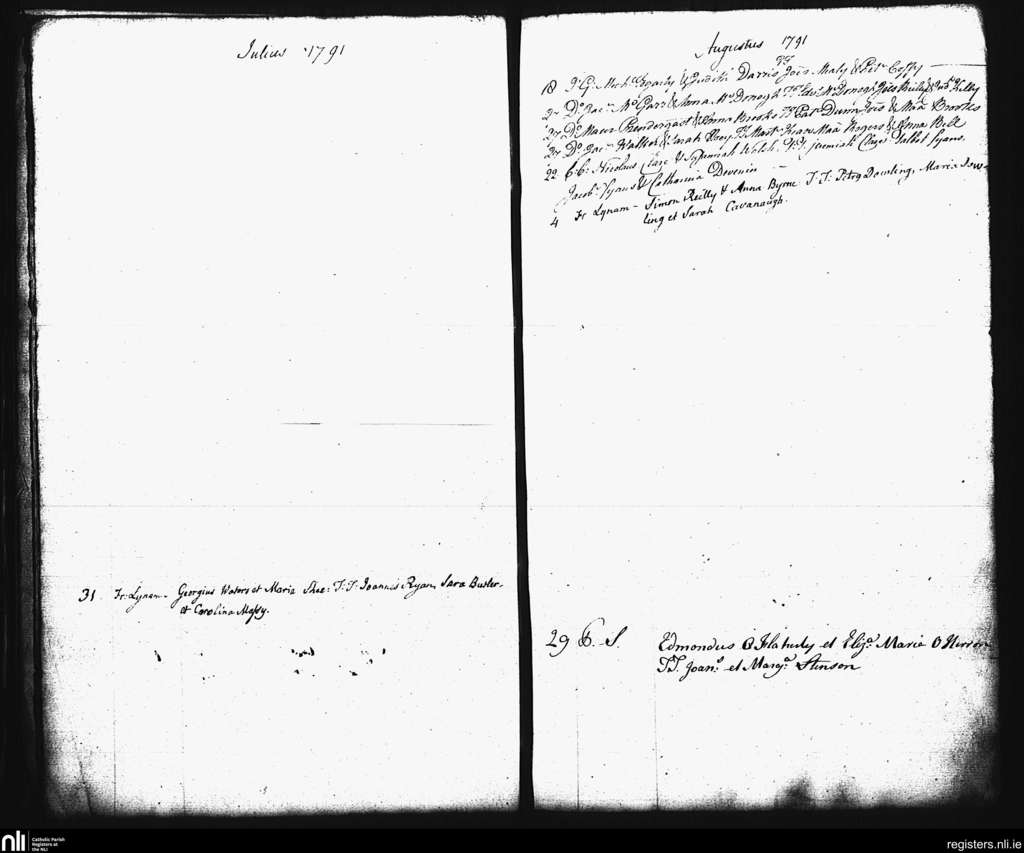 Iulius 1791
31 Fr. Lynam - Georgius Waters et Maria Shee: T.T. Joannis Ryan, Sara Butler
et Carolina Massy.
Augustus 1791
TT
18 Mich. Fogarty & Judith Darris Joēs Mealy & Petr Coffy
27 Do Jac. McGarr & Anna McDonogh TT. Edw. McDonogh Joēs Reilly & Jud. Kelly
27 Do Maur Prendergast & Anna Brooks TT. Patk Dunn Joēs & Maā Brookes
27 Do Jac. Walker & Sarah TT. Mart. Kears Maā Rogers & Anna Bell
22 Nicolaus Clare & Welsh. TT. Jeremiah Clare Talbot Lyans.
Jacob Lyans & Catharina Devenin
4 Fr Lynam - Simon Reilly & Anna Byrne T.T. Petro Dowling, Maria Dow-
ling et Sarah Cavanaugh.
29 B. S. Edmondus O Flaherty et Eliza Maria O
T.T. Joan. et Marg. Stinson
nli Catholic Parish
Registers at
the NLI
registers.nli.ie